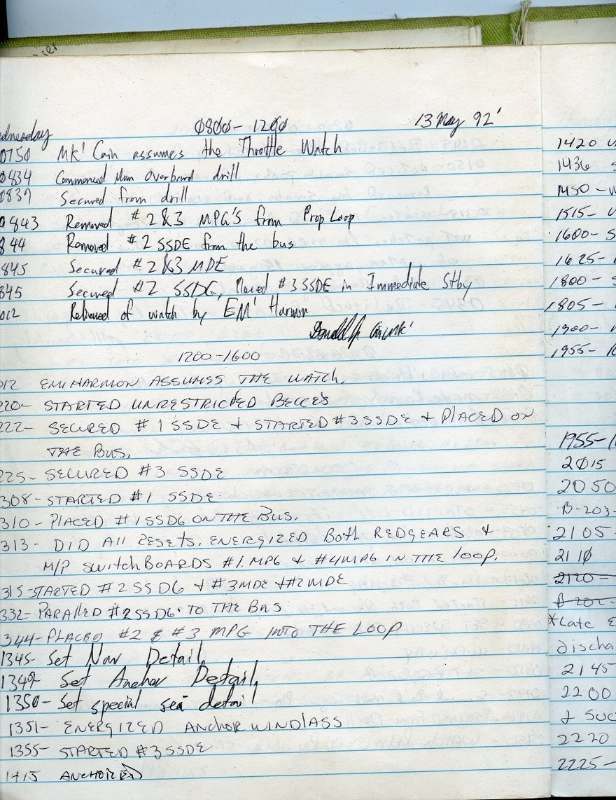 0800-1200 13 May 92'
dnesday
0750 MK1 Cain assumes the Throttle Watch
0834 Commenced Man Overboard drill
0839 Secured from drill
0843 Removed #2&3 MPG's from Prop Loop
844 Removed #2 SSDE from the bus
845 Secured #2&3 MDE
845 Secured #2 SSDG, Placed #3 SSDE in Immediate Stby
012 Relieved of watch by EM1 Harmon
1200-1600
012 EM1 HARMON ASSUMES THE WATCH.
220- STARTED UNRESTRICTED
222- SECURED #1 SSDE & STARTED #3 SSDE & PLACED ON
THE BUS.
225- SECURED #3 SSDE
308- STARTED #1 SSDE
310- PLACED #1 SSDG ON THE BUS.
313- DID All RESETS, ENERGIZED Both REDGEARS &
M/P SWITCHBOARDS #1 MPG & #4 MPG IN THE LOOP.
315- STARTED #2 SSDG & #3 MDE & #2 MDE
332- PARALLED #2 SSDG TO THE BUS
344- PLACED #2 & #3 MPG INTO THE LOOP
1345- Set Nav Detail,
1349- Set Anchor Detail,
1350- Set special sea detail
1351- ENERGIZED ANCHOR WINDLASS
1355- STARTED #3 SSDE
1415 ANCHORED
1420
1436
1450-
1515-
1600-
1625-
1800-
1805-
1900-
1955-
1955-
2015
2050
B-203-
2105-
2110
2120-
B-202-
*Late E
discha
2145
2200
& Suc
2220
2225-